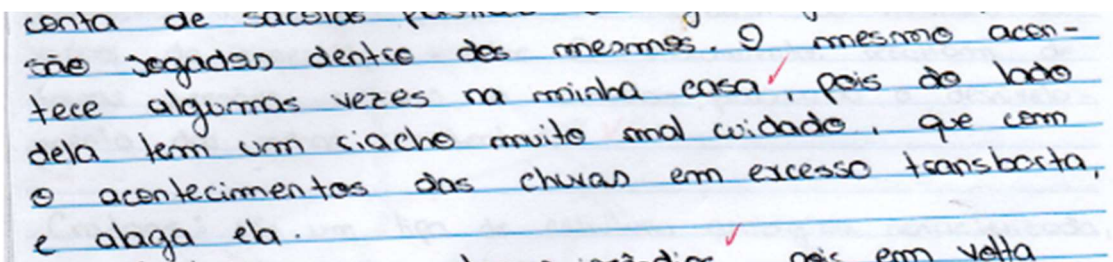 conta de sacolas
são jogadas dentro dos mesmos. O mesmo acon-
tece algumas vezes na minha casa, pois do lado
dela tem um riacho muito mal cuidado, que com
o acontecimentos das chuvas em excesso transborta,
e alaga ela.
pois em volta